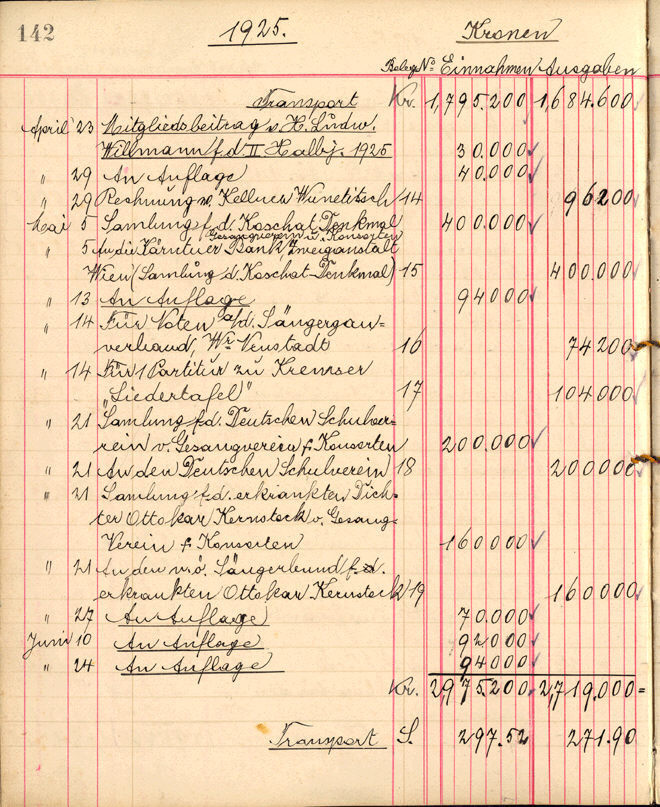 142 1925. Kronen
Belegs No Einnahmen Ausgaben
Transport Kr. 1,795.200 1,684.600
April 23 Mitgliedsbeitrag v. H. Ludw.
Willmann f. d. II Halbj. 1925 30.000
" 29 An Auflage 40.000
" 29 Rechnung v. Kellner Wunetitsch 14 96200
Mai 5 Samlung f. d. Koschat Denkmal 400.000
Gesangverein u. Konsorten
" 5 An die Kärntner Bank, Zweiganstalt
Wien (Samlung f. d. Koschat-Denkmal) 15 400.000
" 13 An Auflage 94000
" 14 Für Noten a/d. Sängergau=
verband, Wr. Neustadt 16 74200
" 14 Für 1 Partitur zu Kremser
"Liedertafel" 17 104000
" 21 Samlung f. d. Deutschen Schulver=
rein v. Gesangverein & Konsorten 200.000
" 21 An den Deutschen Schulverein 18 200000
" 21 Samlung f. d. erkrankten Dich=
ter Ottokar Kernstock v. Gesang=
Verein & Konsorten 160000
" 21 An den n. ö. Sängerbund f. d.
erkrankten Ottokar Kernstock 19 160000
" 27 An Auflage 70.000
Juni 10 An Auflage 92000
" 24 An Auflage 94000
Kr. 2975.200 2,719.000=
Transport S. 297.52 271.90